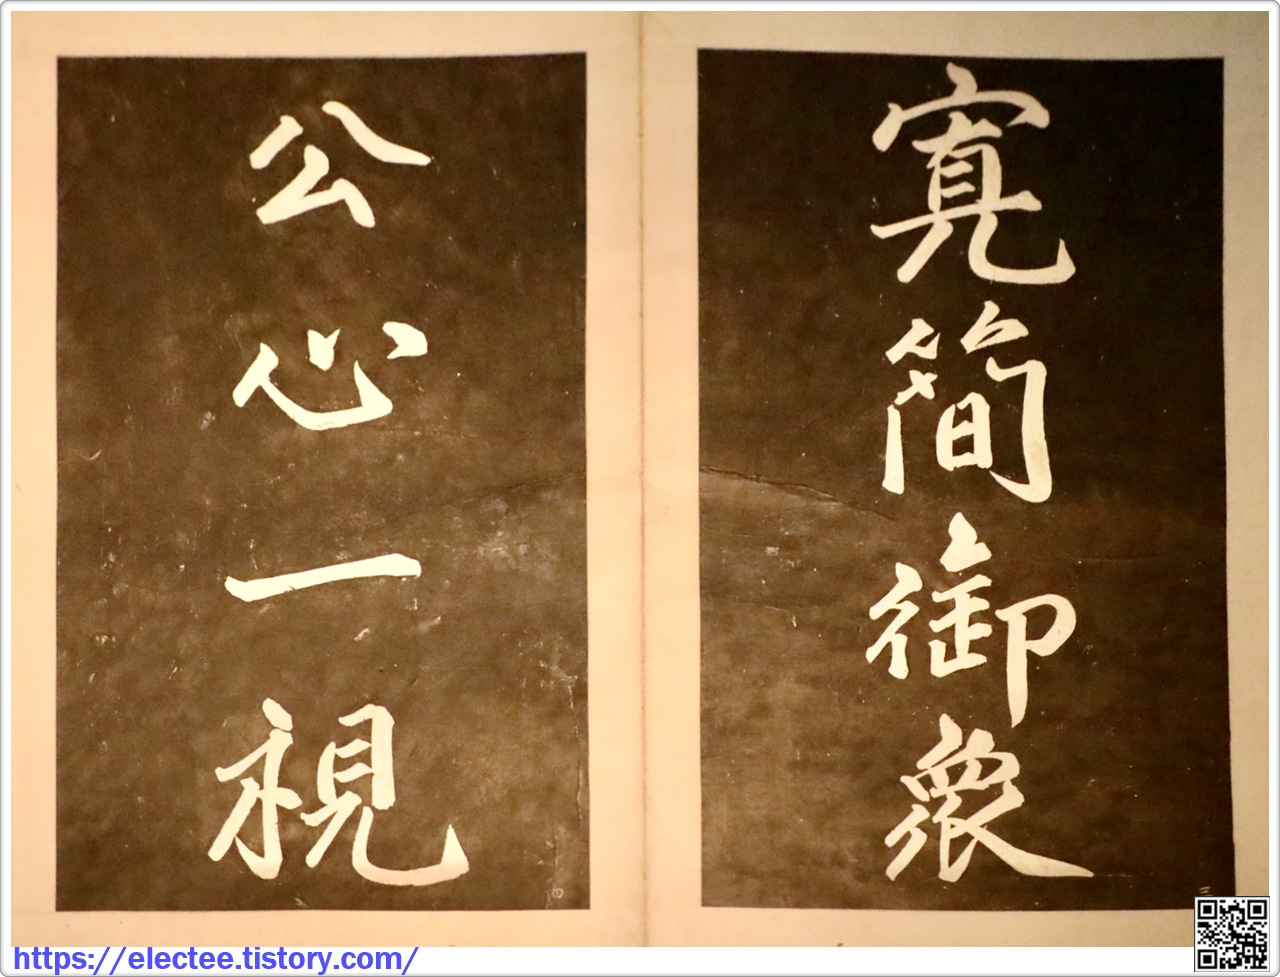 寬簡御衆
三
公心一視
四
https://electee.tistory.com/